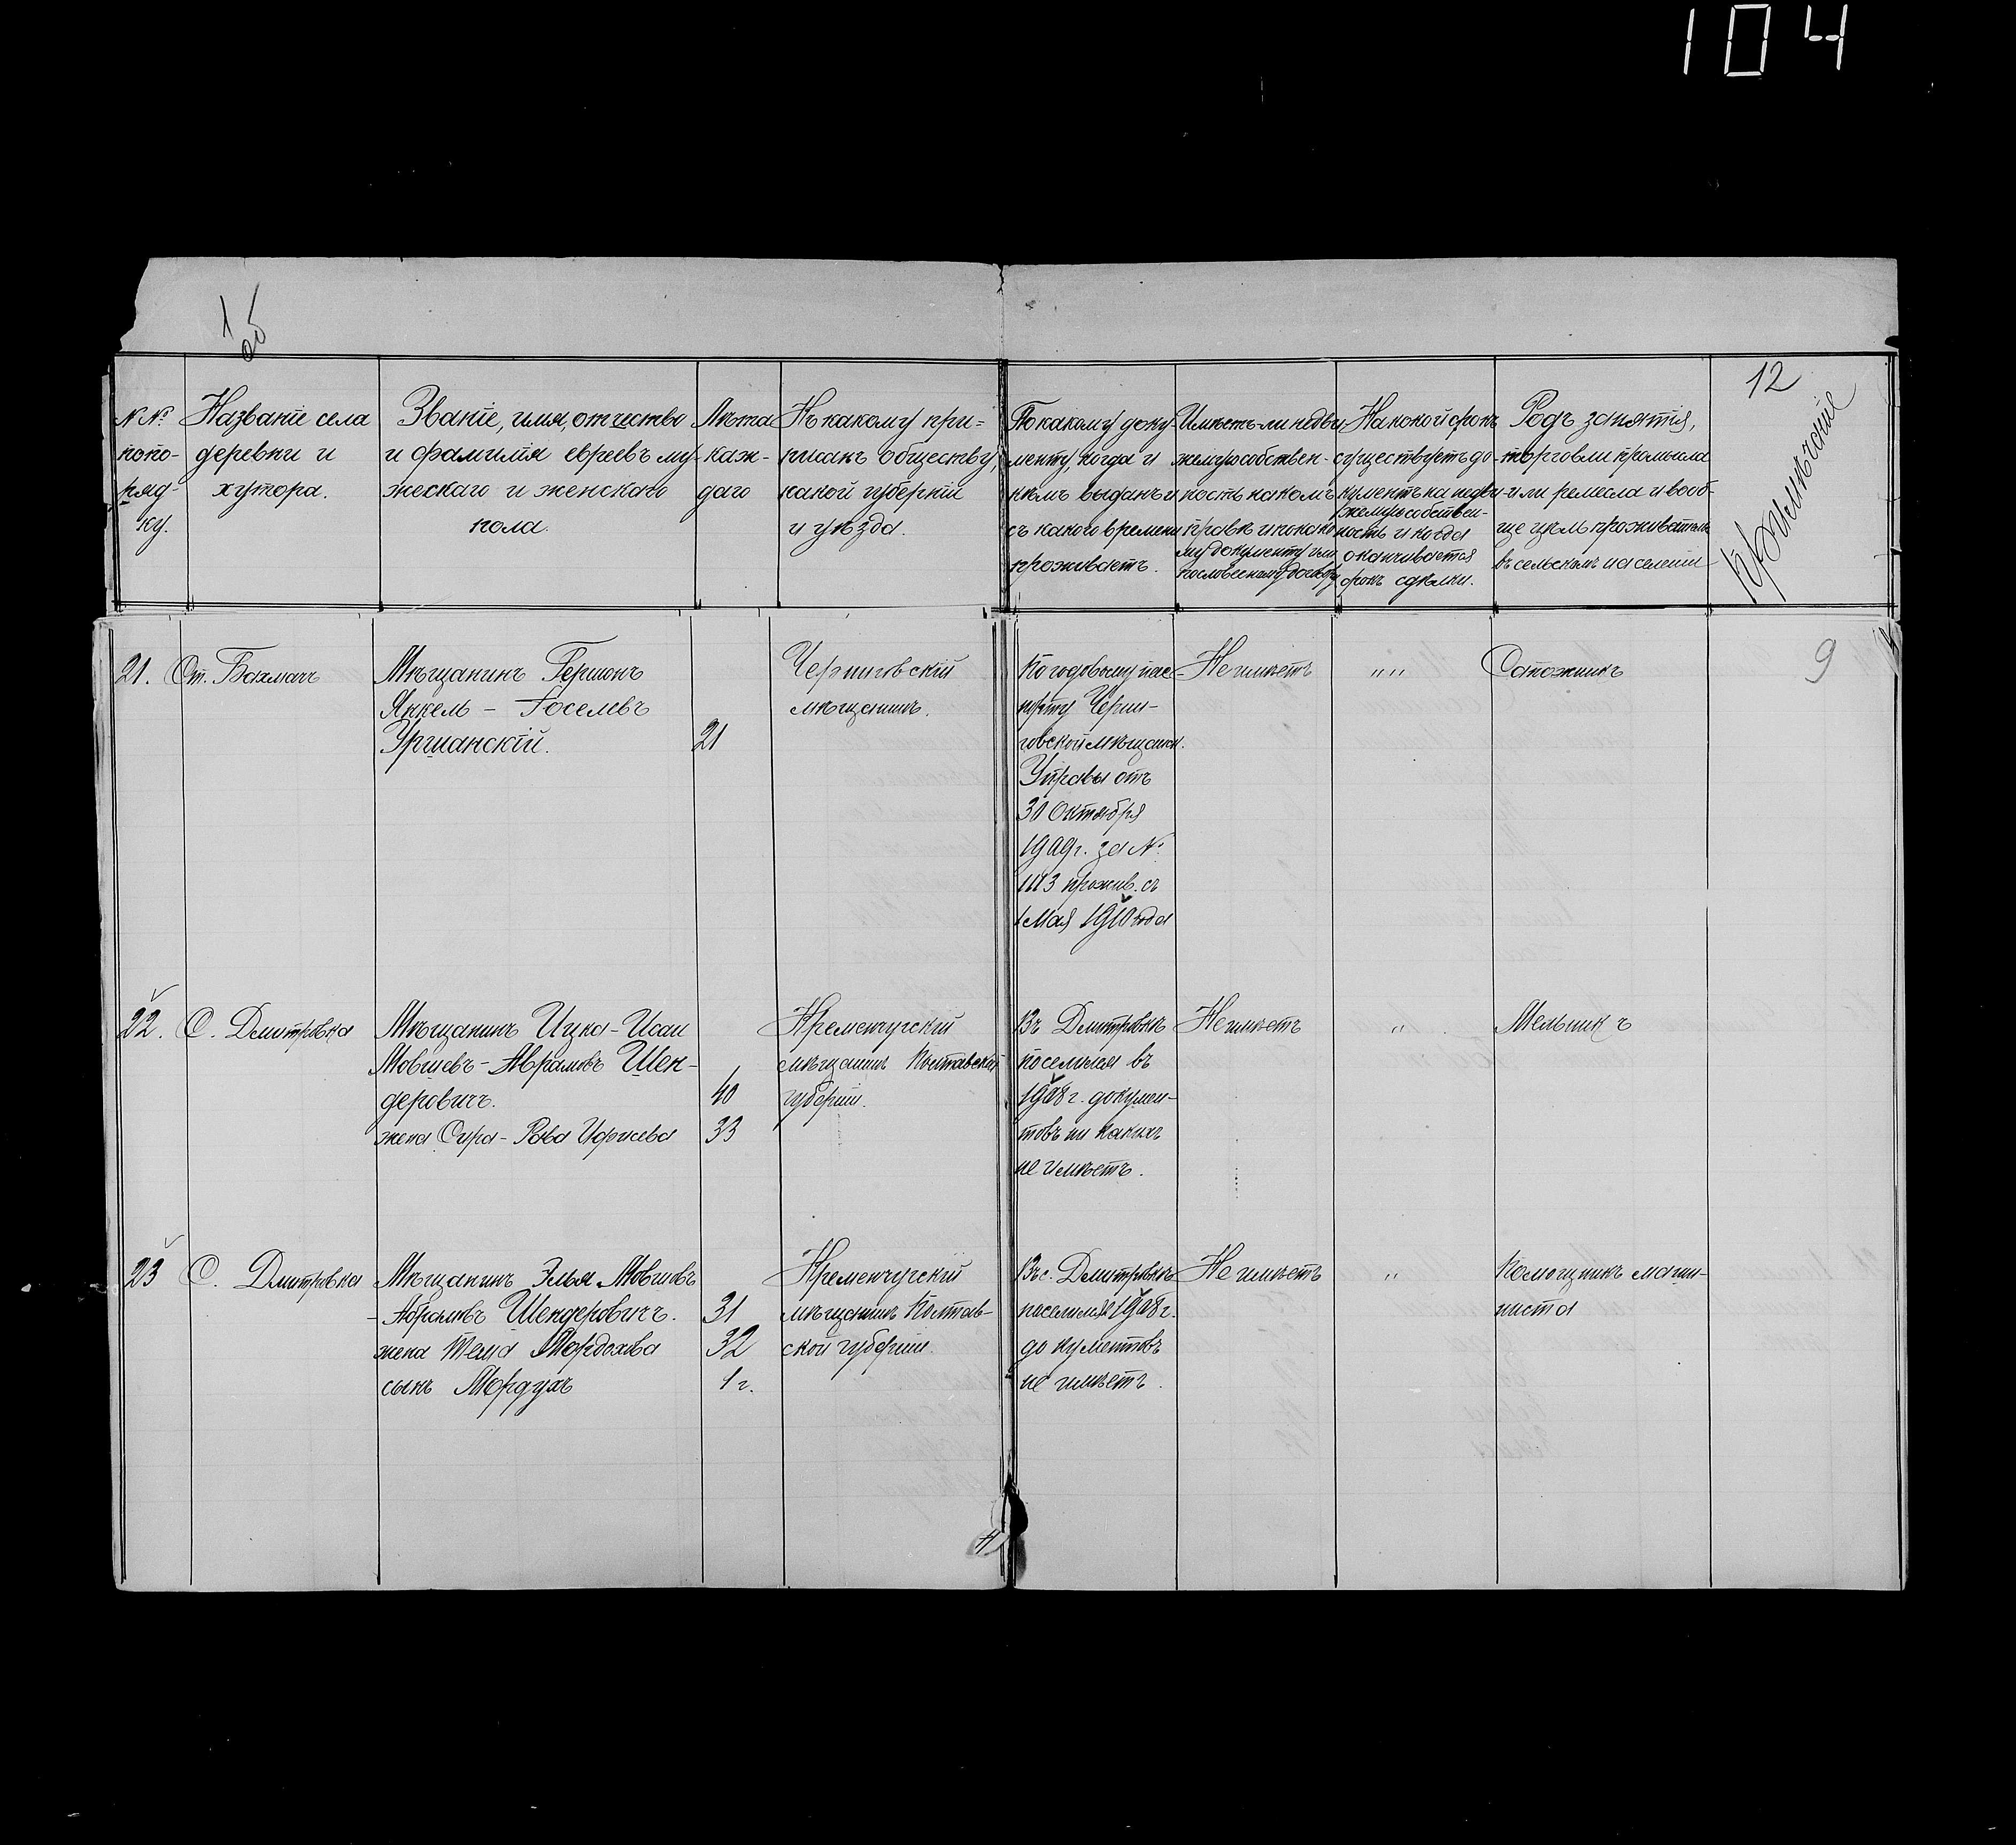 104
1
об
12
№№
попо-
ряд-
ку.
Названіе села
деревни и
хутора.
Званіе, имя, отчество
и фамилія евреевъ му-
жескаго и женскаго
пола.
Лѣта
каж-
даго
Къ какому при-
писанъ обществу,
какой губерніи
и уѣзда.
По какому доку-
менту, когда и
кѣмъ выданъ и
съ какого времени
проживаетъ.
Имѣетъ-ли недви-
жимую собствен-
ность на комъ
правѣ и по како-
му документу или
по словесному
На какой срокъ
существуетъ до-
кументъ на недви-
жимую собствен-
ность и когда
оканчивается
срокъ сдѣлки.
Родъ занятія,
торговли промысла
или ремесла и вооб-
ще цѣль проживательства
въ сельскомъ населеніи
Примѣчаніе
9
21.
Ст. Бахмачъ
Мѣщанинъ Гершонъ
Янкель - Іоселевъ
Уршанскій.
21
Черниговскій
мѣщанинъ.
По годовому пас-
порту Черни-
говской мѣщанск.
Управы отъ
30 Октября
1909г. за №
1113 прожив. съ
1 Мая 1910 года
Не имѣетъ
" "
Сапожникъ
22.
С. Дмитровка
Мѣщанинъ Ицка-Исаи
Мовшевъ-Аврамовъ Шен-
деровичъ.
жена Сура-Рава
40
33
Кременчугскій
мѣщанинъ Полтавской
губерніи.
Въ Дмитровкѣ
поселился въ
1908 г. докумен-
товъ ни какихъ
не имѣетъ.
Не имѣетъ
"
Мельникъ
23
С. Дмитровка
Мѣщанинъ Элья Мовшовъ
-Абрамовъ Шендеровичъ.
жена Тема Мордохова
сынъ Мордухъ
31
32
1 г.
Кременчугскій
мѣщанинъ Полтав-
ской губерніи.
Въ с. Дмитровкѣ
поселился 1908 г.
документовъ
не имѣетъ.
Не имѣетъ
"
Помощникъ маши-
ниста